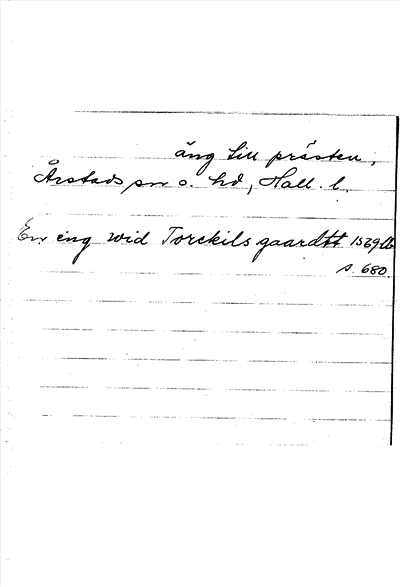 äng till prästen,
Årstads sn o. hd, Hall. l.
En eng wid Torckils gaardtt 1569 Jb
s. 680.